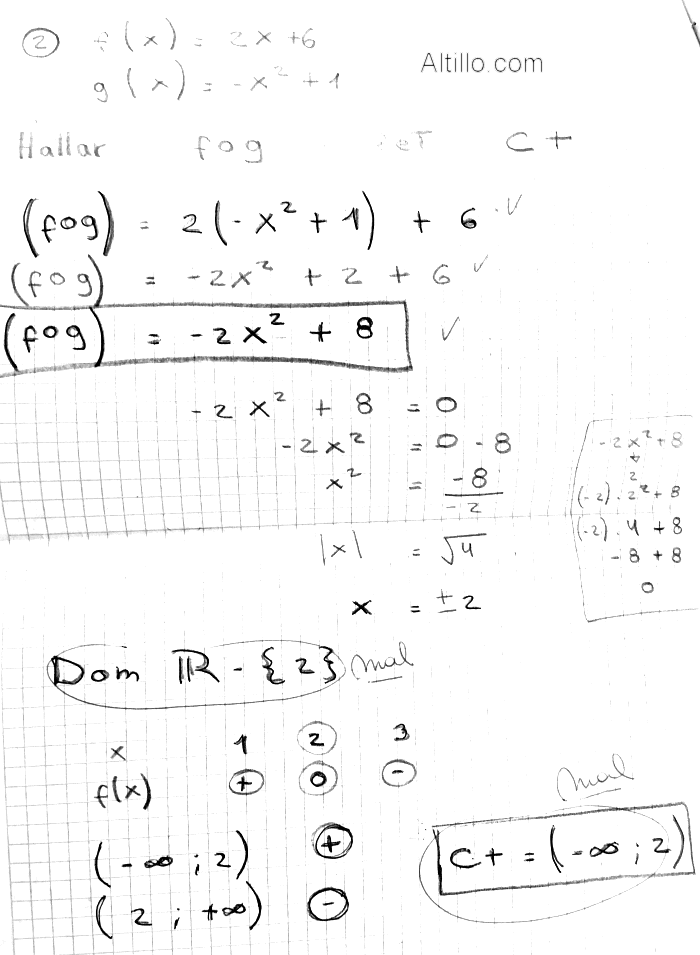 2 f(x) = 2x + 6
Altillo.com
g(x) = -x² + 1
Hallar fog C+
(fog) = 2(-x² + 1) + 6 ✓
(fog) = -2x² + 2 + 6 ✓
(fog) = -2x² + 8 ✓
-2x² + 8 = 0
-2x² = 0 - 8
x² = -8 / -2
|x| = √4
x = ±2
-2x² + 8
2
(-2) . 2² + 8
(-2) . 4 + 8
-8 + 8
0
Dom ℝ - {2} mal
x 1 2 3
f(x) + 0 -
(-∞ ; 2) +
(2 ; +∞) -
mal
C+ = (-∞ ; 2)